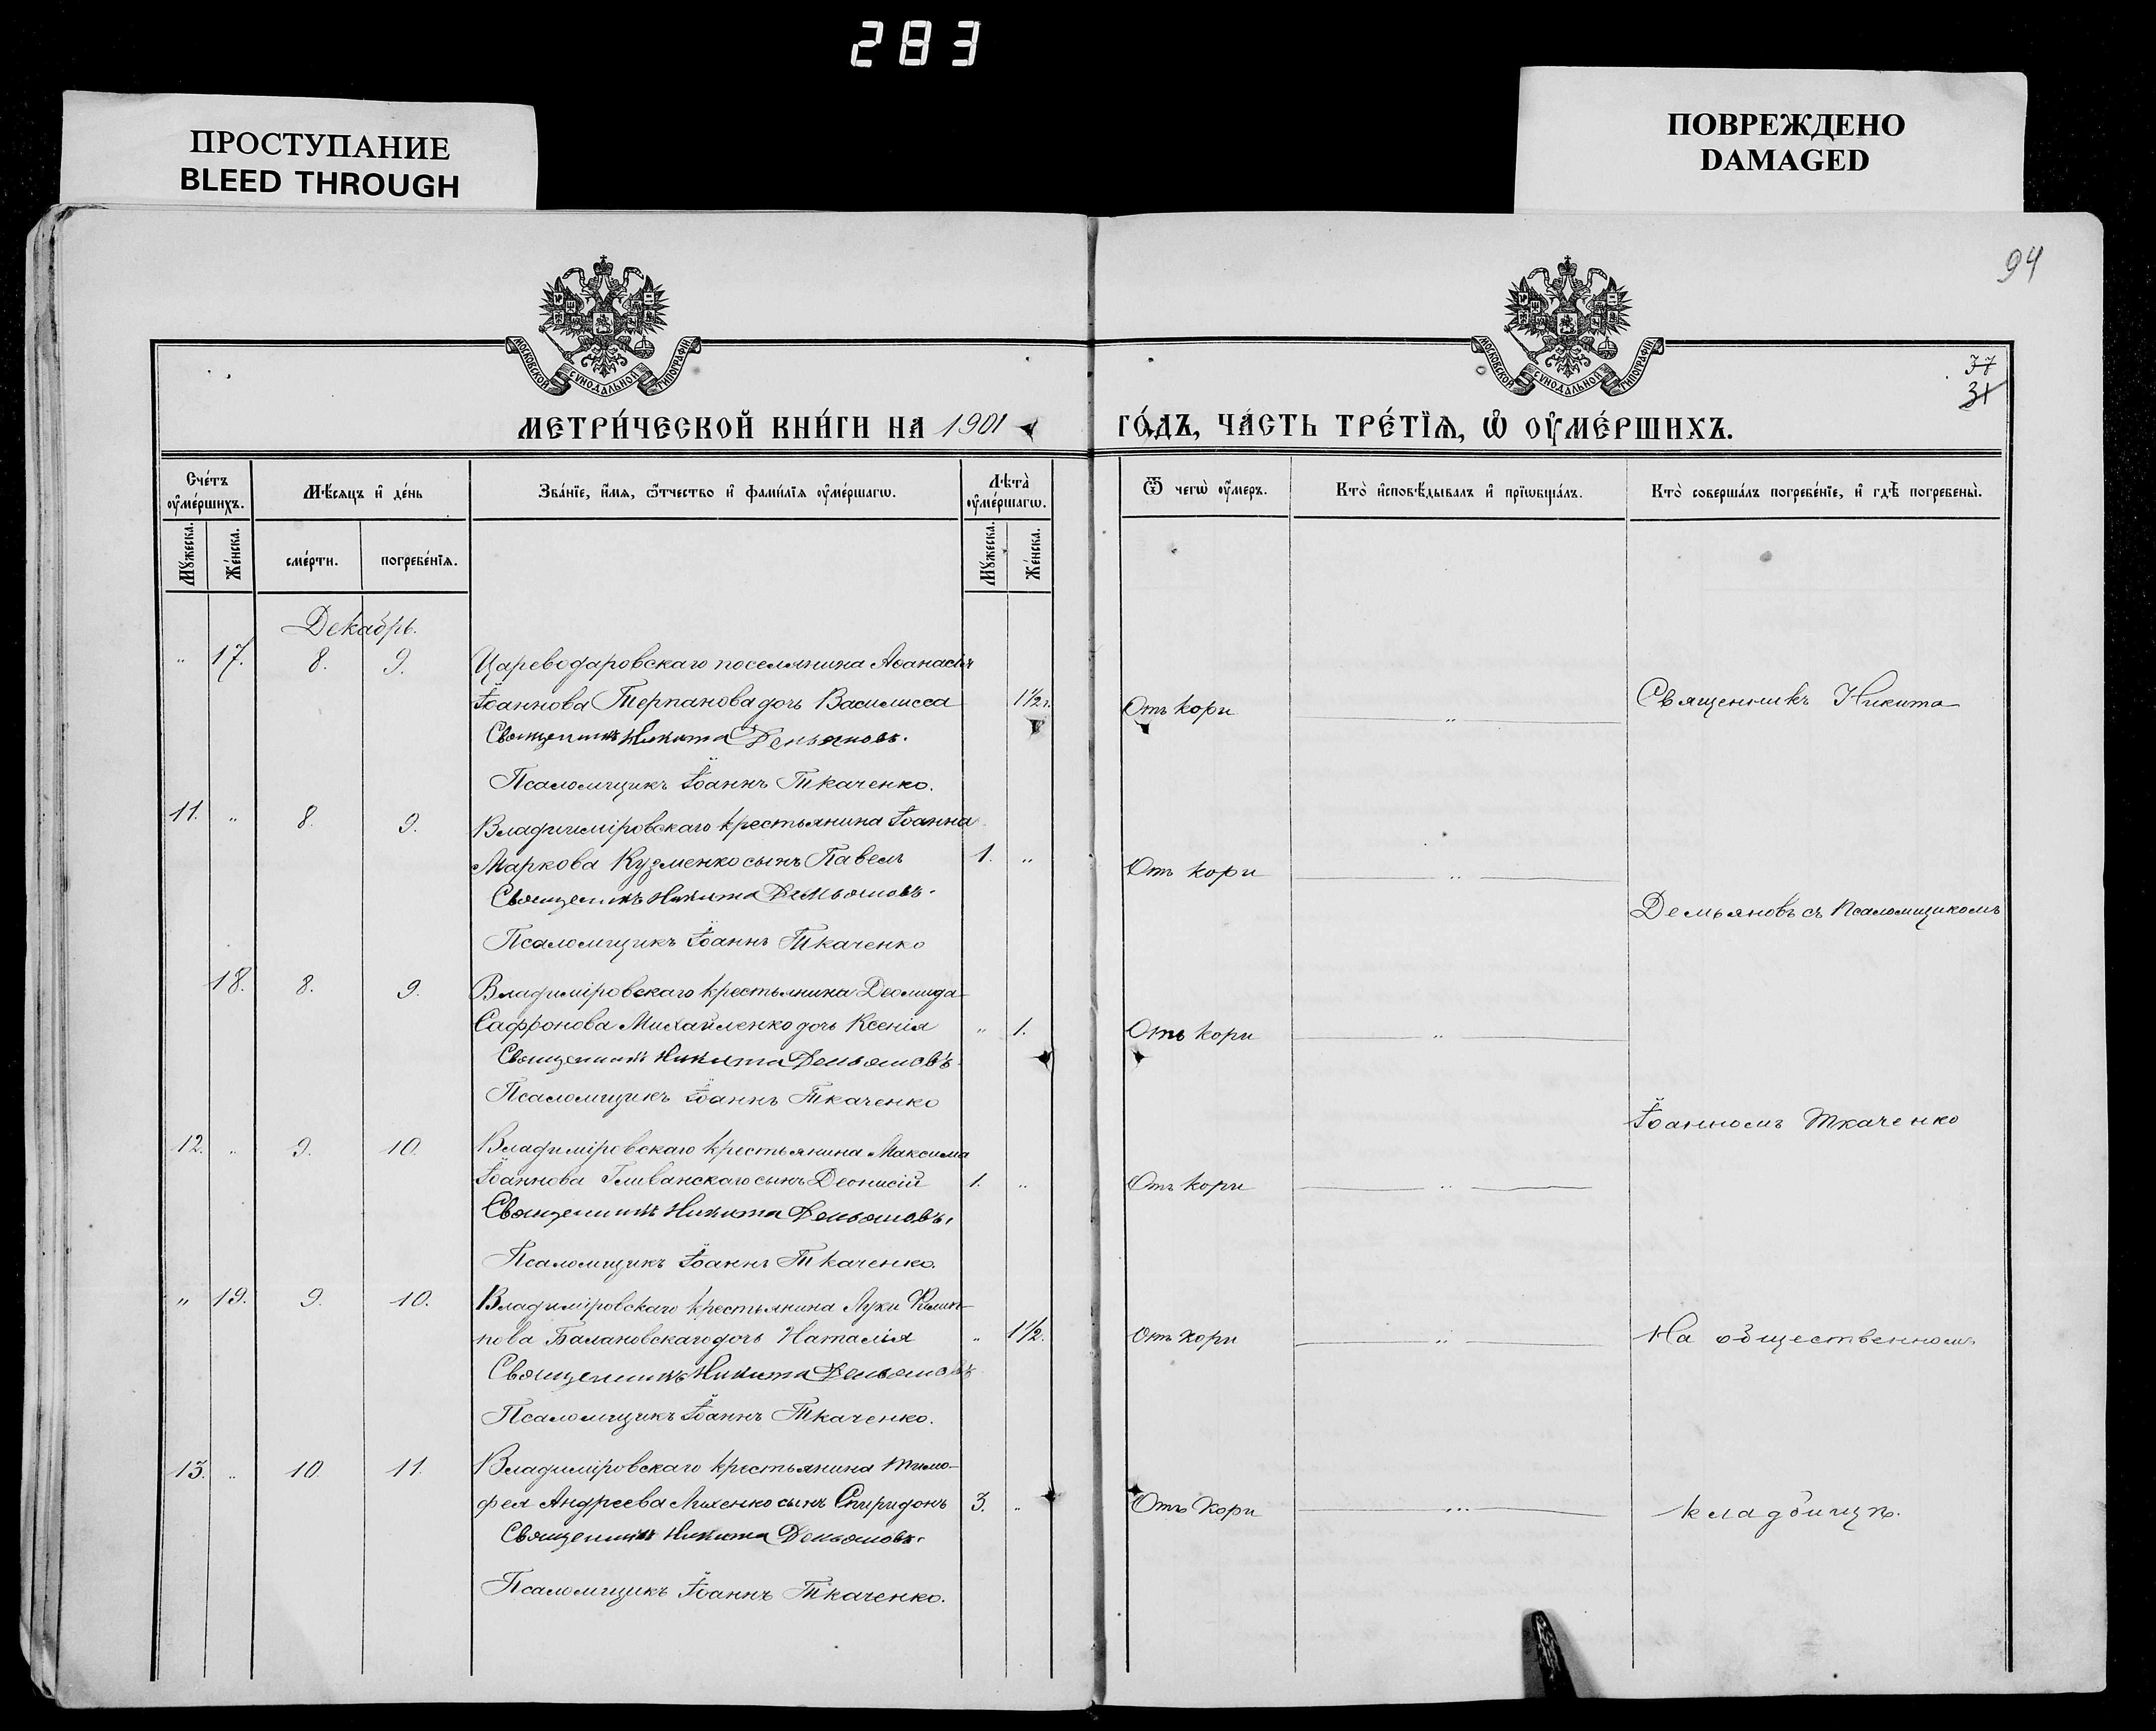 283
ПРОСТУПАНИЕ
BLEED THROUGH
ПОВРЕЖДЕНО
DAMAGED
94
МОСКОВСКОЙ СѴНОДАЛЬНОЙ ТИПОГРАФІИ
МОСКОВСКОЙ СѴНОДАЛЬНОЙ ТИПОГРАФІИ
37
31
МЕТРИ́ЧЕСКОЙ КНИ́ГИ НА 1901
ГО́ДЪ, ЧА́СТЬ ТРЕ́ТЇѦ, Ѡ҆ ОУ҆МЕ́РШИХЪ.
Сче́тъ оу҆ме́ршихъ.
Мѣ́сѧцъ и҆ де́нь
Зва́нїе, и҆́мѧ, ѻ҆́тчество и҆ фами́лїѧ оу҆ме́ршагѡ.
Лѣ́та оу҆ме́ршагѡ.
Ѿ чегѡ̀ оу҆́меръ.
Кто̀ и҆сповѣ́дывалъ и҆ прїѡбща́лъ.
Кто̀ соверша́лъ погребе́нїе, и҆ гдѣ̀ погребены̀.
Мꙋ́жеска.
Же́нска.
сме́рти.
погребе́нїѧ.
Мꙋ́жеска.
Же́нска.
Декабрь.
" 17. 8. 9. Цареводаровскаго поселянина Аѳанасія
Іоаннова Терпанова дочь Василисса 1½ г. Отъ кори " Священникъ Никита
Священникъ Никита Демьяновъ.
Псаломщикъ Іоаннъ Ткаченко.
11. " 8. 9. Владиміровскаго крестьянина Іоанна
Маркова Кузменко сынъ Павелъ 1. " Отъ кори "
Священникъ Никита Демьяновъ.
Демьяновъ съ Псаломщикомъ
Псаломщикъ Іоаннъ Ткаченко
18. 8. 9. Владиміровскаго крестьянина Деомида
Сафронова Михайленко дочь Ксенія " 1. Отъ кори "
Священникъ Никита Демьяновъ.
Псаломщикъ Іоаннъ Ткаченко
Іоанномъ Ткаченко
12. " 9. 10. Владиміровскаго крестьянина Максима
Іоаннова сынъ Деонисій 1. " Отъ кори "
Священникъ Никита Демьяновъ.
Псаломщикъ Іоаннъ Ткаченко.
" 19. 9. 10. Владиміровскаго крестьянина Луки Филип-
пова Балановскаго дочь Наталія " 1½. Отъ кори " На общественномъ
Священникъ Никита Демьяновъ
Псаломщикъ Іоаннъ Ткаченко.
13. " 10. 11. Владиміровскаго крестьянина Тимо-
фея Андреева сынъ Спиридонъ 3. " Отъ кори " кладбищѣ.
Священникъ Никита Демьяновъ.
Псаломщикъ Іоаннъ Ткаченко.